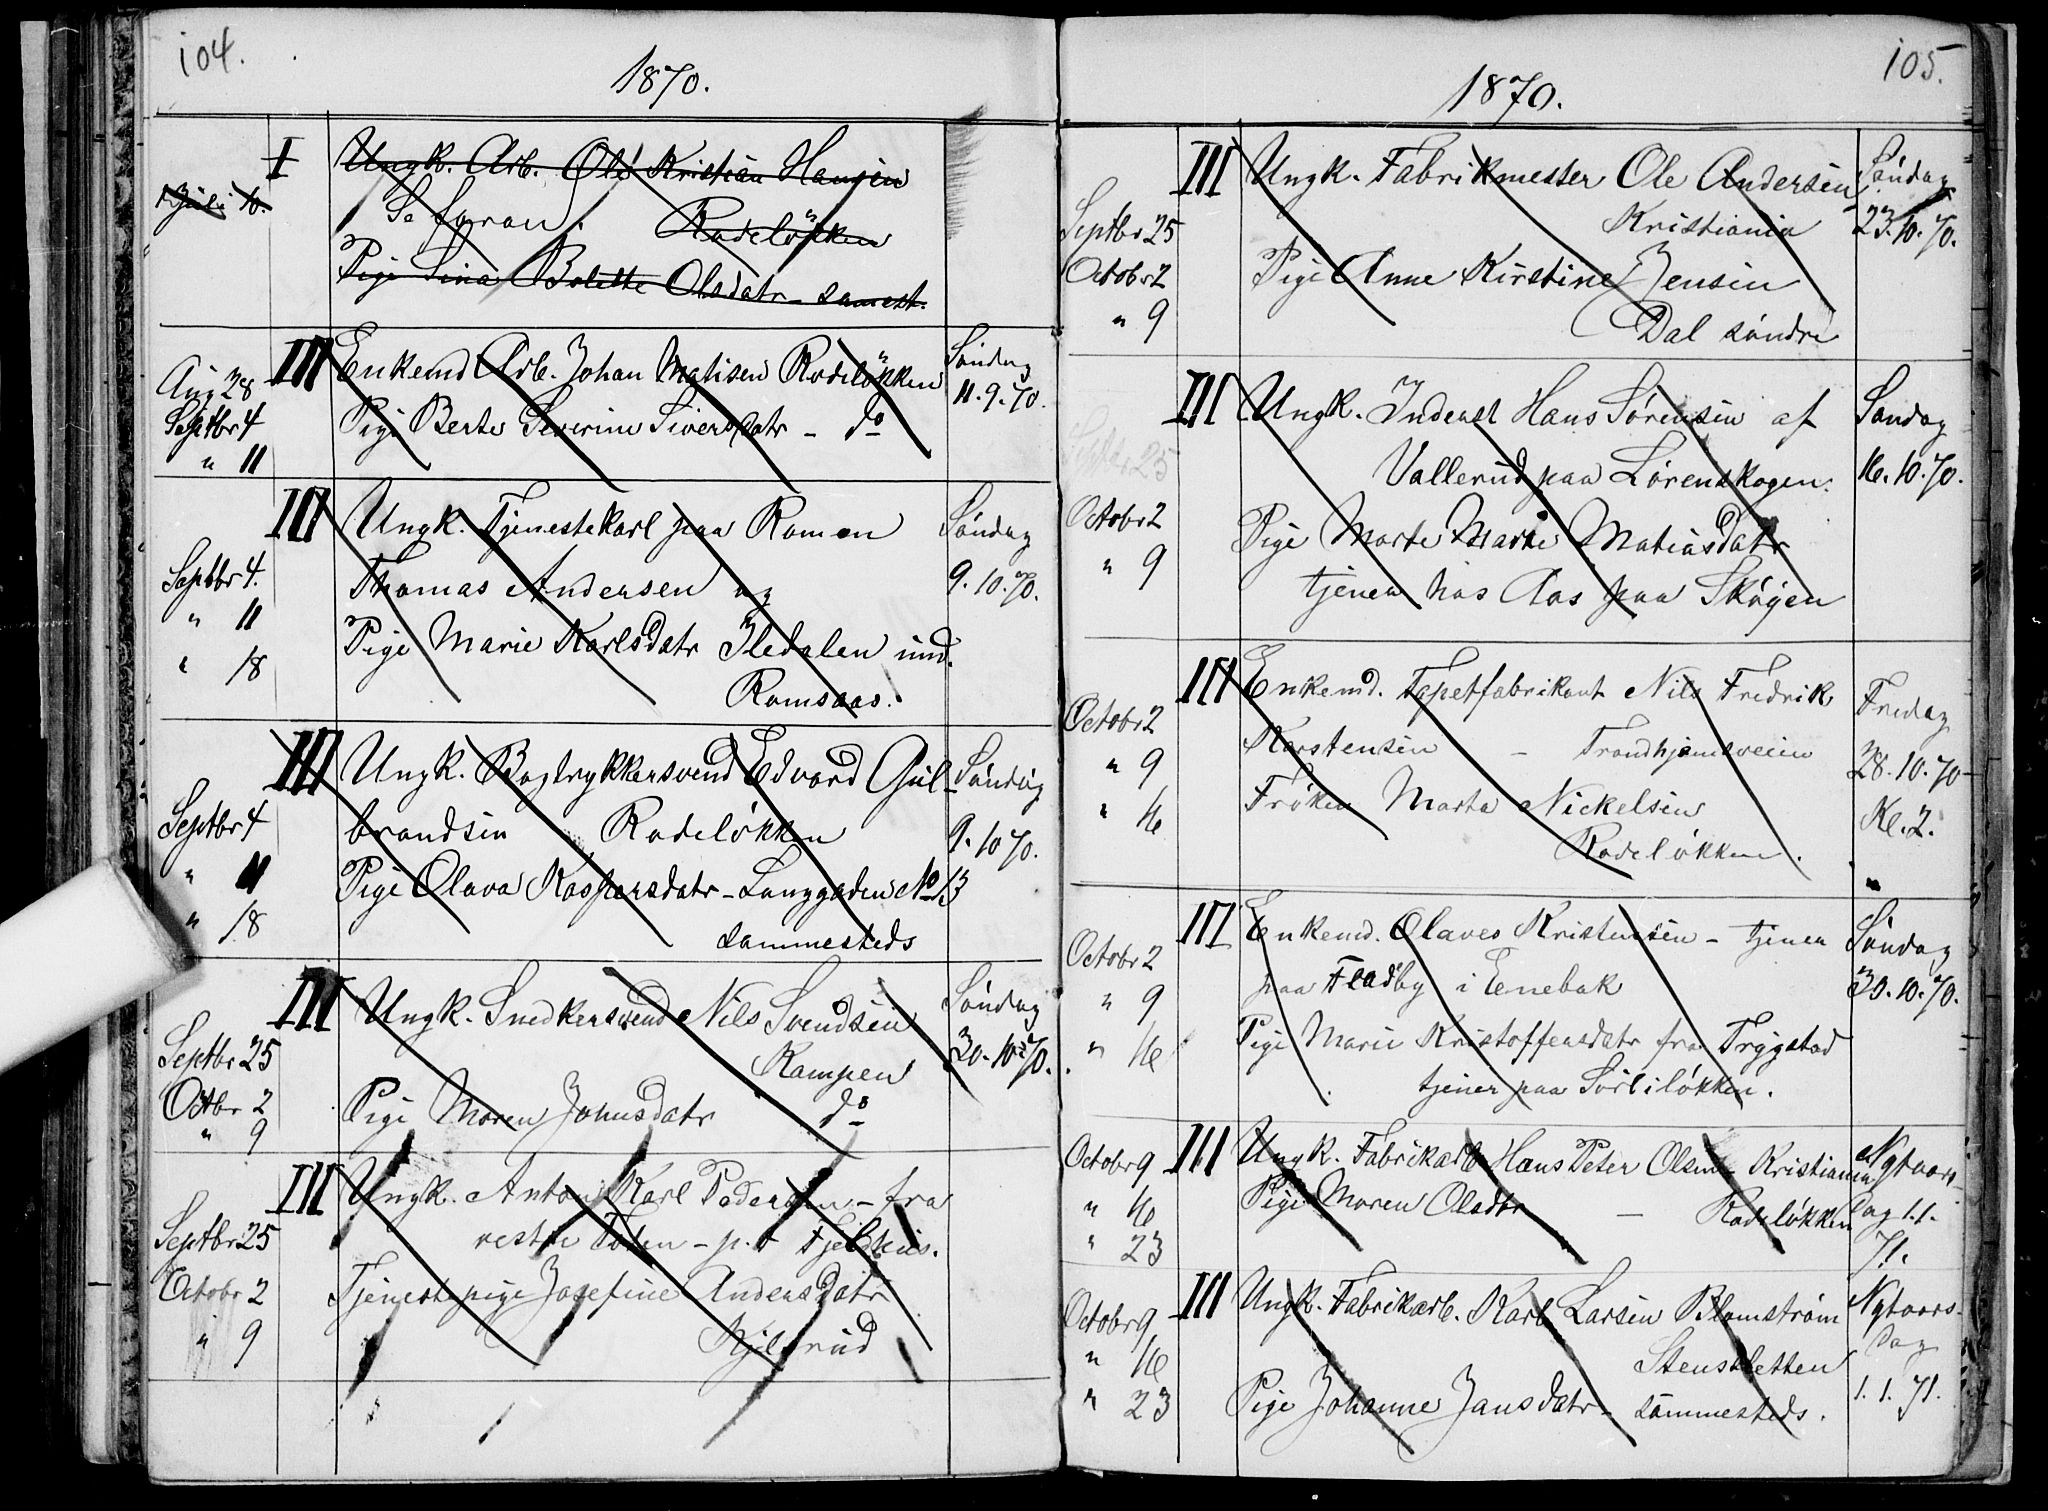 104.
1870.
Juli 10.
I
Ungk. Arb. Ole Kristian Hansen
Rodeløkken
Pige Lina Bolette Olsdatr - samest.
Aug 28
Septbr 4
" 11
III
Enkemd Arb. Johan Matisen Rodeløkken
Pige Berte Severine Siversdatr - do
Søndag
11.9.70.
Septbr 4.
" 11
" 18
III
Ungk. Tjenestekarl paa Romen
Thomas Andersen og
Pige Marie Karlsdatr Iledalen und.
Romsaas.
Søndag
9.10.70.
Septbr 4
" 11
" 18
III
Ungk. Bogtrykkersvend Edvard Gul-
brandsen Rodeløkken
Pige Olava Kaspersdatr - Langgaden No 13
sammesteds
Søndag
9.10 70.
Septbr 25
Octbr 2
" 9
III
Ungk. Snedkersvend Nils Svendsen
Kampen
Pige Maren Johnsdatr do
Søndag
30.10.70.
Septbr 25
Octobr 2
" 9
III
Ungk. Anton Karl Pedersen - fra
vestre Toten - p.t
Tjenestepige Josefine Andersdatr
105.
1870.
Septbr 25
Octobr 2
" 9
III
Ungk. Fabrikmester Ole Andersen
Kristiania
Pige Anne Kirstine Jensen
Dal søndre
Søndag
23.10.70.
Septbr 25
Octobr 2
" 9
III
Ungk. Inderst Hans Sørensen af
Vallerud paa Lørenskogen.
Pige Marte Marie Matiasdatr
tjener hos Aas paa Skøyen
Søndag
16.10.70.
Octobr 2
" 9
" 16
III
Enkemd. Tapetfabrikant Nils Fredrik
Karstensen - Trondhjemsveien
Frøken Marta Nickelsen
Rodeløkken.
Fredag
28.10.70
Kl. 2.
Octobr 2
" 9
" 16
III
Enkemd. Olaves Kristensen - tjener
paa Fladby i Enebak
Pige Marie Kristoffersdatr fra Trygstad
tjener paa Sorliløkken.
Søndag
30.10.70.
Octobr 9
" 16
" 23
III
Ungk. Fabrikarb Hans Peter Olsen Kristiania
Pige Maren Olsdtr - Rodeløkken
Nytaars-
dag 1.1.
71.
Octobr 9
" 16
" 23
III
Ungk. Fabrikarb. Karl Larsen Blomstrøm
Stensletten
Pige Johanne Jansdatr - sammesteds.
Nytaars-
dag
1.1.71.